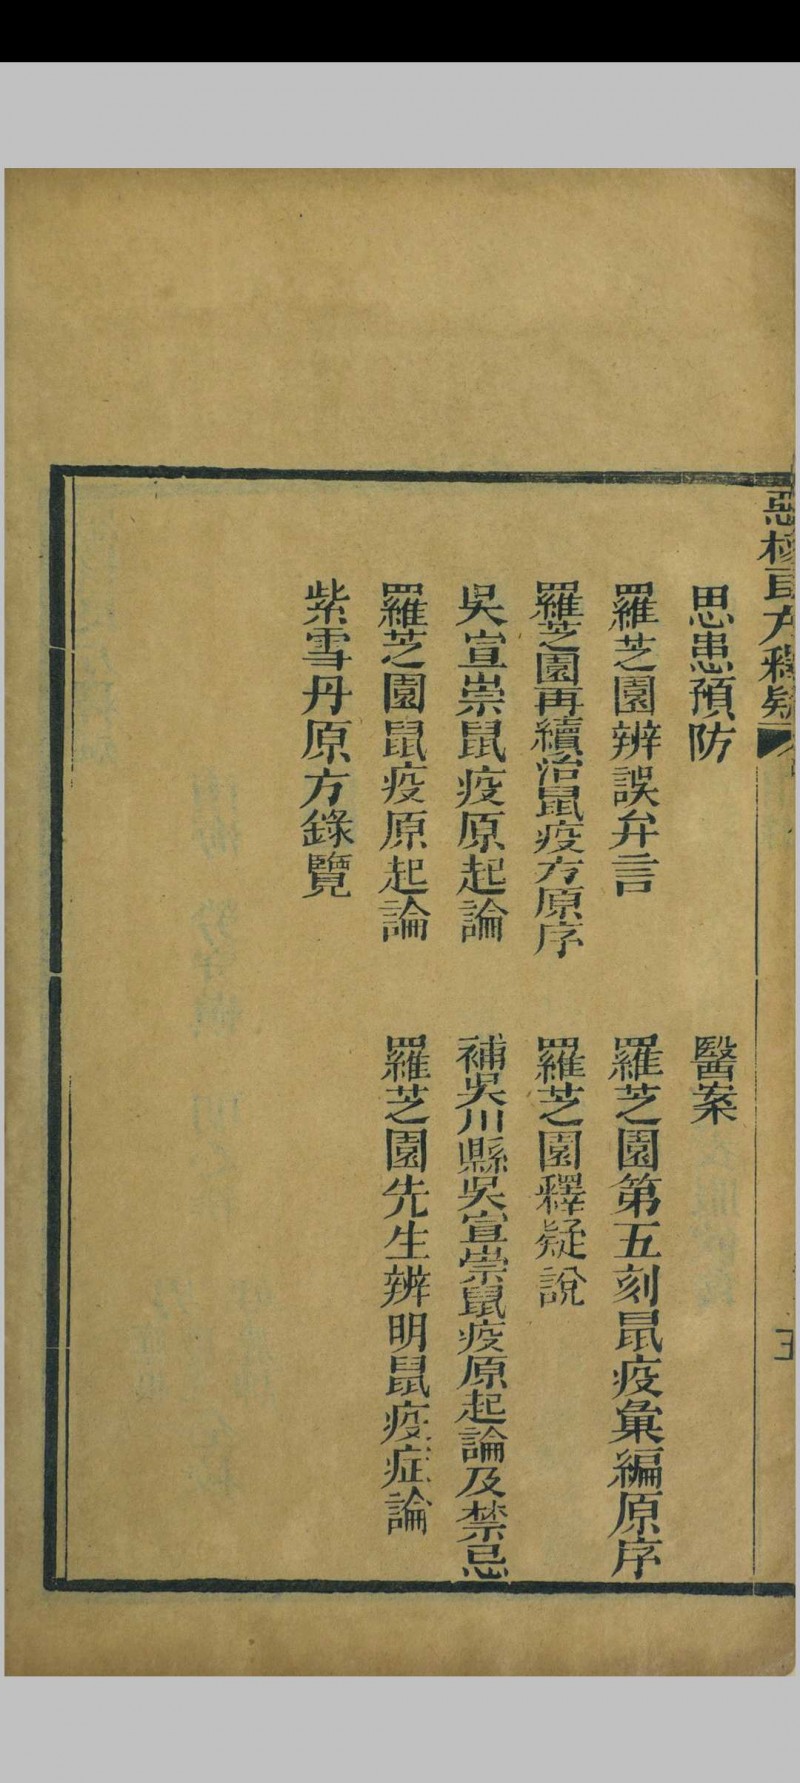 惡核良方釋疑
思患預防
醫案
羅芝園辨誤弁言
羅芝園第五刻鼠疫彙編原序
羅芝園再續治鼠疫方原序
羅芝園釋疑說
吳宣崇鼠疫原起論
補吳川縣吳宣崇鼠疫原起論及禁忌
羅芝園鼠疫原起論
羅芝園先生辨明鼠疫症論
紫雪丹原方錄覽